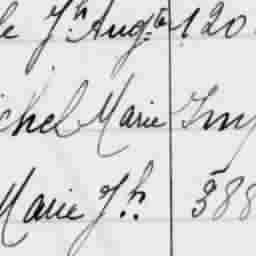 le Jh Augte 120
chel Marie Imp
Marie Jh. 388